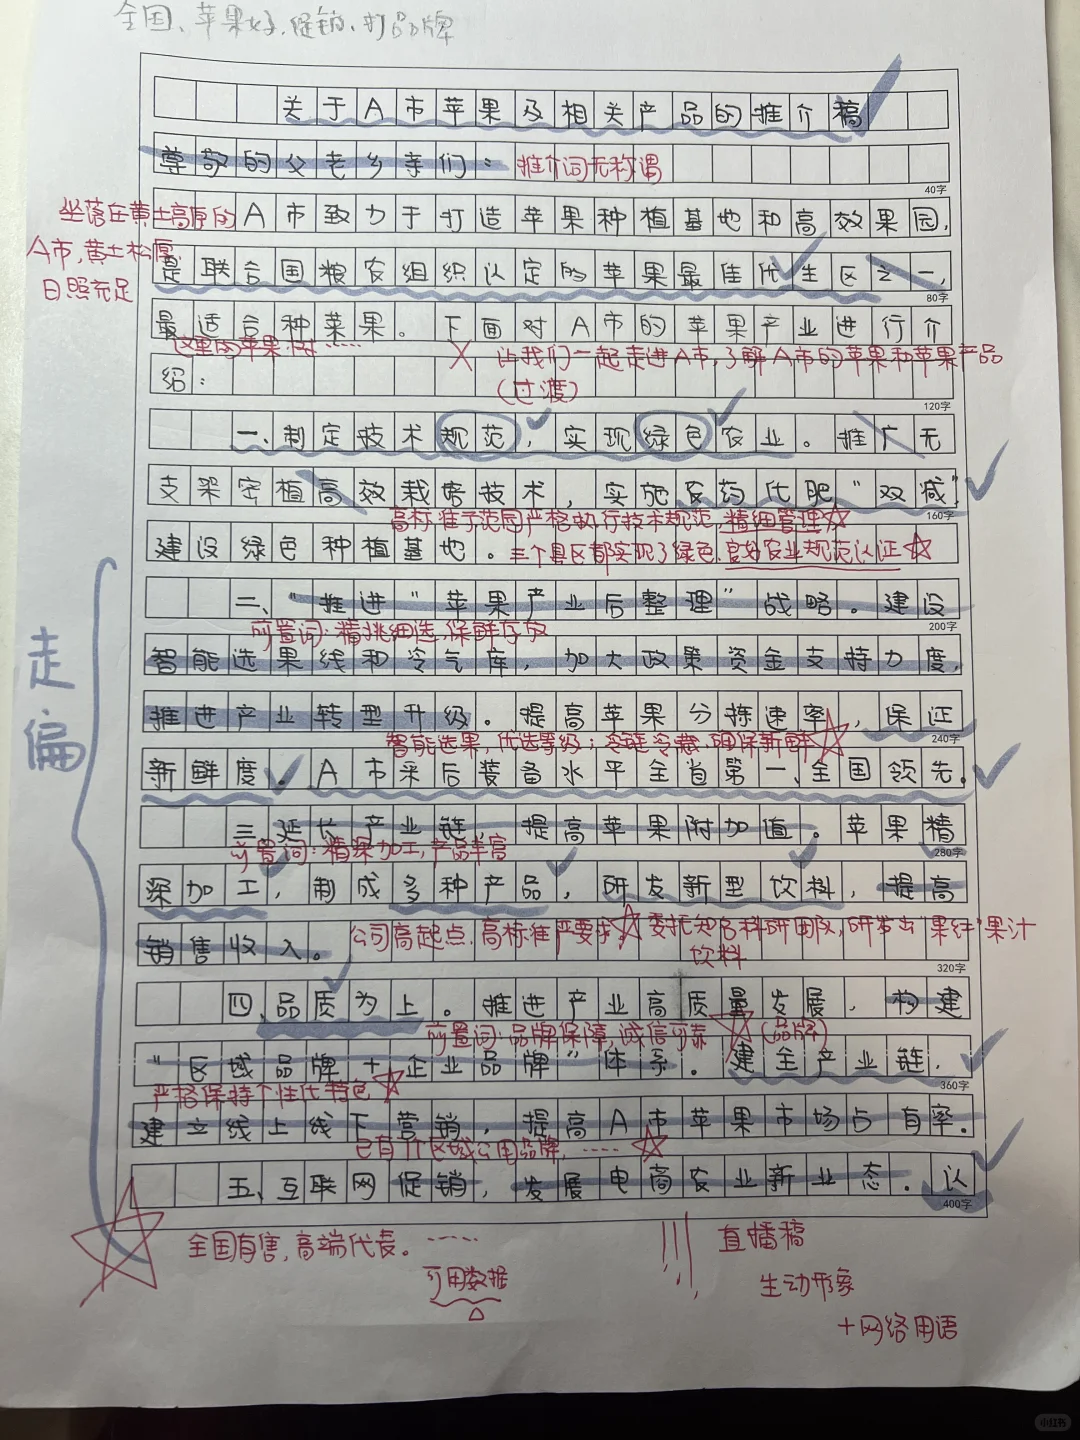 全国、苹果好、促销、打品牌
关于A市苹果及相关产品的推介稿
尊敬的父老乡亲们：
推介词无称谓
40字
坐落在黄土高原的
A市致力于打造苹果种植基地和高效果园，
A市，黄土松厚
是联合国粮农组织认定的苹果最佳优生区之一，
日照充足
80字
最适合种苹果。下面对A市的苹果产业进行介
这里的苹果树……
X 让我们一起走进A市，了解A市的苹果和苹果产品
绍：
(过渡)
120字
一、制定技术规范，实现绿色农业。推广无
支架密植高效栽培技术，实施农药化肥“双减”
160字
高标准示范园严格执行技术规范，精细管理☆
建设绿色种植基地。
三个县区都实现了绿色、良好农业规范认证☆
二、“推进”苹果产业后整理”战略。建设
200字
前置词：精挑细选，保鲜存放
智能选果线和冷气库，加大政策资金支持力度，
推进产业转型升级。提高苹果分拣速率，保证
240字
智能选果，优选等级；冷链冷藏，确保新鲜☆
新鲜度。A市采后装备水平全省第一、全国领先。
走偏
三、延长产业链，提高苹果附加值。苹果精
280字
前置词：精深加工，产品丰富
深加工，制成多种产品，研发新型饮料，提高
销售收入。
公司高起点、高标准严要求☆ 委托知名科研团队，研发出“果纤”果汁
饮料
320字
四、品质为上。推进产业高质量发展，构建
前置词：品牌保障，诚信可靠☆(品牌)
“区域品牌+企业品牌”体系。建全产业链，
360字
严格保持个性化特色☆
建立线上线下营销，提高A市苹果市场占有率。
已有1个区域公用品牌，……☆
五、互联网促销，发展电商农业新业态。认
400字
全国有售，高端代表。……
可用数据
直播稿
生动形象
+网络用语
小红书